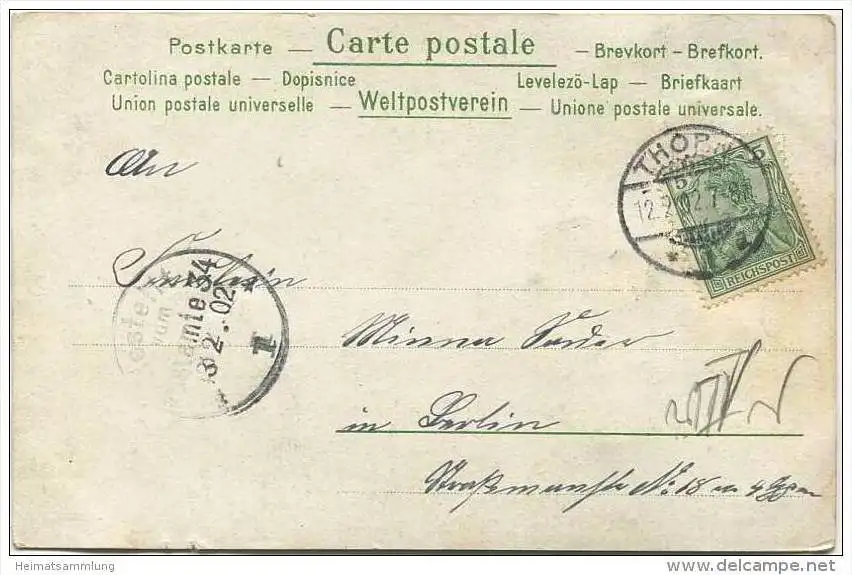 Postkarte — Carte postale — Brevkort – Brefkort.
Cartolina postale — Dopisnice Levelező-Lap — Briefkaart
Union postale universelle — Weltpostverein — Unione postale universale.
An
THOR
5
12.2.02.7
REICHSPOST
Fräulein
34
2.02
I
Minna
in Berlin
Straßmannstr No 18
Heimatsammlung
delcampe.net